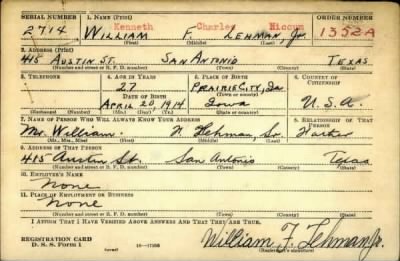 SERIAL NUMBER 1. NAME (Print) ORDER NUMBER
Kenneth Charley Hiccum
2714 WILLIAM F. LEHMAN Jr. 1352A
(First) (Middle) (Last)
2. ADDRESS (Print)
415 AUSTIN ST. SAN ANTONIO TEXAS
(Number and street or R. F. D. number) (Town) (County) (State)
3. TELEPHONE 4. AGE IN YEARS 5. PLACE OF BIRTH 6. COUNTRY OF CITIZENSHIP
27 PRAIRIE CITY, Ia
DATE OF BIRTH
APRIL 20, 1914 Iowa U. S. A.
(Exchange) (Number) (Mo.) (Day) (Yr.) (State or country)
7. NAME OF PERSON WHO WILL ALWAYS KNOW YOUR ADDRESS 8. RELATIONSHIP OF THAT PERSON
Mr. William Lehman, Sr.
(Mr., Mrs., Miss) (First) (Middle) (Last)
9. ADDRESS OF THAT PERSON
415 Austin St. San Antonio Texas
(Number and street or R. F. D. number) (Town) (County) (State)
10. EMPLOYER'S NAME
None
11. PLACE OF EMPLOYMENT OR BUSINESS
None
(Number and street or R. F. D. number) (Town) (County) (State)
I AFFIRM THAT I HAVE VERIFIED ABOVE ANSWERS AND THAT THEY ARE TRUE.
REGISTRATION CARD
D. S. S. FORM 1
William F. Lehman Jr.
(Registrant's signature)